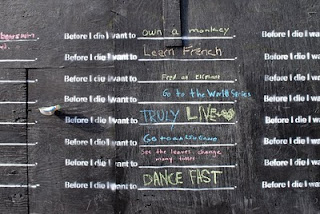 Before I die I want to own a monkey
Before I die I want to Learn French
Before I die I want to Find an Elephant
Before I die I want to Go to the World Series
Before I die I want to TRULY LIVE
Before I die I want to Go to
Before I die I want to See the leaves change many times
Before I die I want to DANCE FAST
Before I die I want to
Before I die I want to
Before I die I want to
Before I die I want to
Before I die I want to
Before I die I want to
Before I die I want to
Before I die I want to